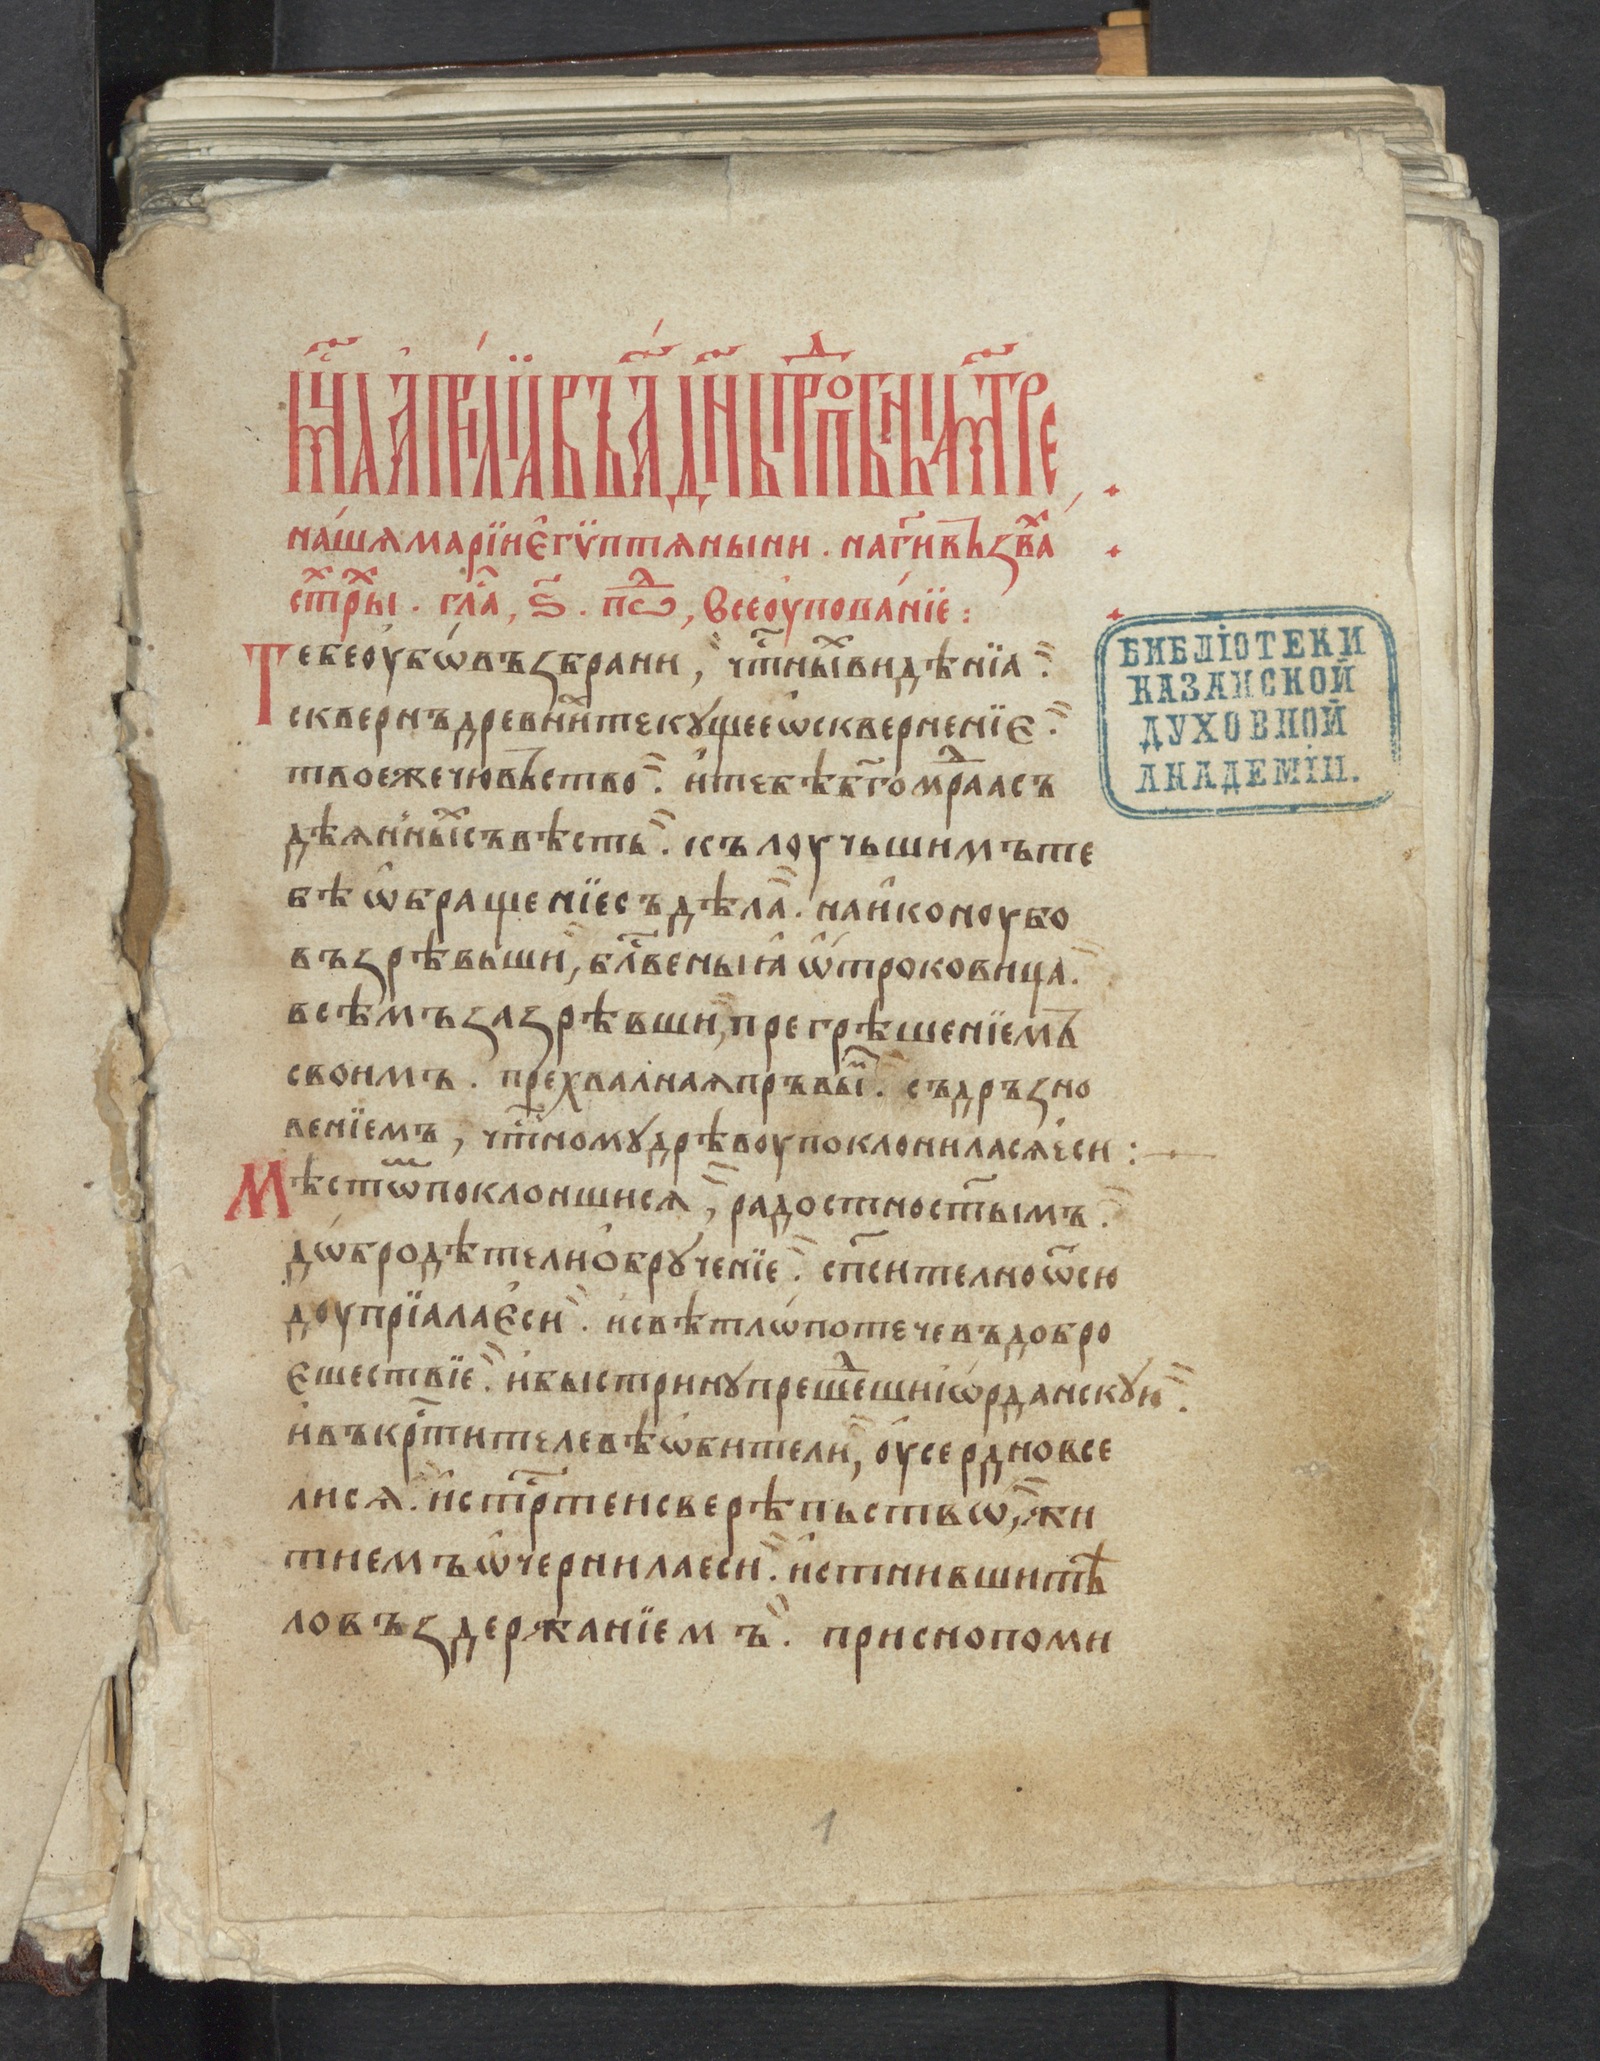 мⷭ҇ца априлїа въ а҃ днь прпⷣобныѧ мт҃ре
на́шѧ марїи є҆гѵ́птѧныни . на гⷭ҇и въззва́
стⷯры . гла́ , ѕ҃ . по́ⷣ , все оупова́нїе :
Тебе оубѡ́ въꙁбрани , чтⷭ҇ныⷯ видѣнїа .
сквернъ древниⷯ текущее ѡсквернениїє .
твое же чювьство . и҆ тебѣ бг҃омрⷣаа съ
дѣѧнныⷯ съвѣсть . къ лоучьшимъ те
бѣ ѡ҆бращенїе съдѣла . на и҆кону бо
въꙁрѣвьши , блгⷭ҇веныѧ ѡ҆троковица .
всѣмъ ꙁаꙁрѣвши , прегрѣшенїемъ
своимъ . прехвалнаѧ пръвыⷨ . съ дръꙁно
венїемъ , чтⷭ҇ному дрѣвоу поклониласѧ є҆си :
Мѣстѡⷨ поклоншисѧ , радостно ст҃ымъ .
дѡбродѣтели ѻ҆брученїе . спⷭ҇ително ѿ сю
доу прїала є҆си . и҆ свѣтлѡ потече въ добро
є шествїе . и҆ быстрину прешеⷣши і҆ѡрданскую .
и҆ въ крⷭ҇тителевѣ ѡ҆бители , оу҆сердно все
лисѧ . и҆ стрⷭ҇тей сверѣпьствѡ , жи
тиемъ ѡ҆чернила еси . и҆стнивши тѣ
ло въꙁдержанїемъ . присно поми
БИБЛІОТЕКИ
КАЗАНСКОЙ
ДУХОВНОЙ
АКАДЕМІИ.
1